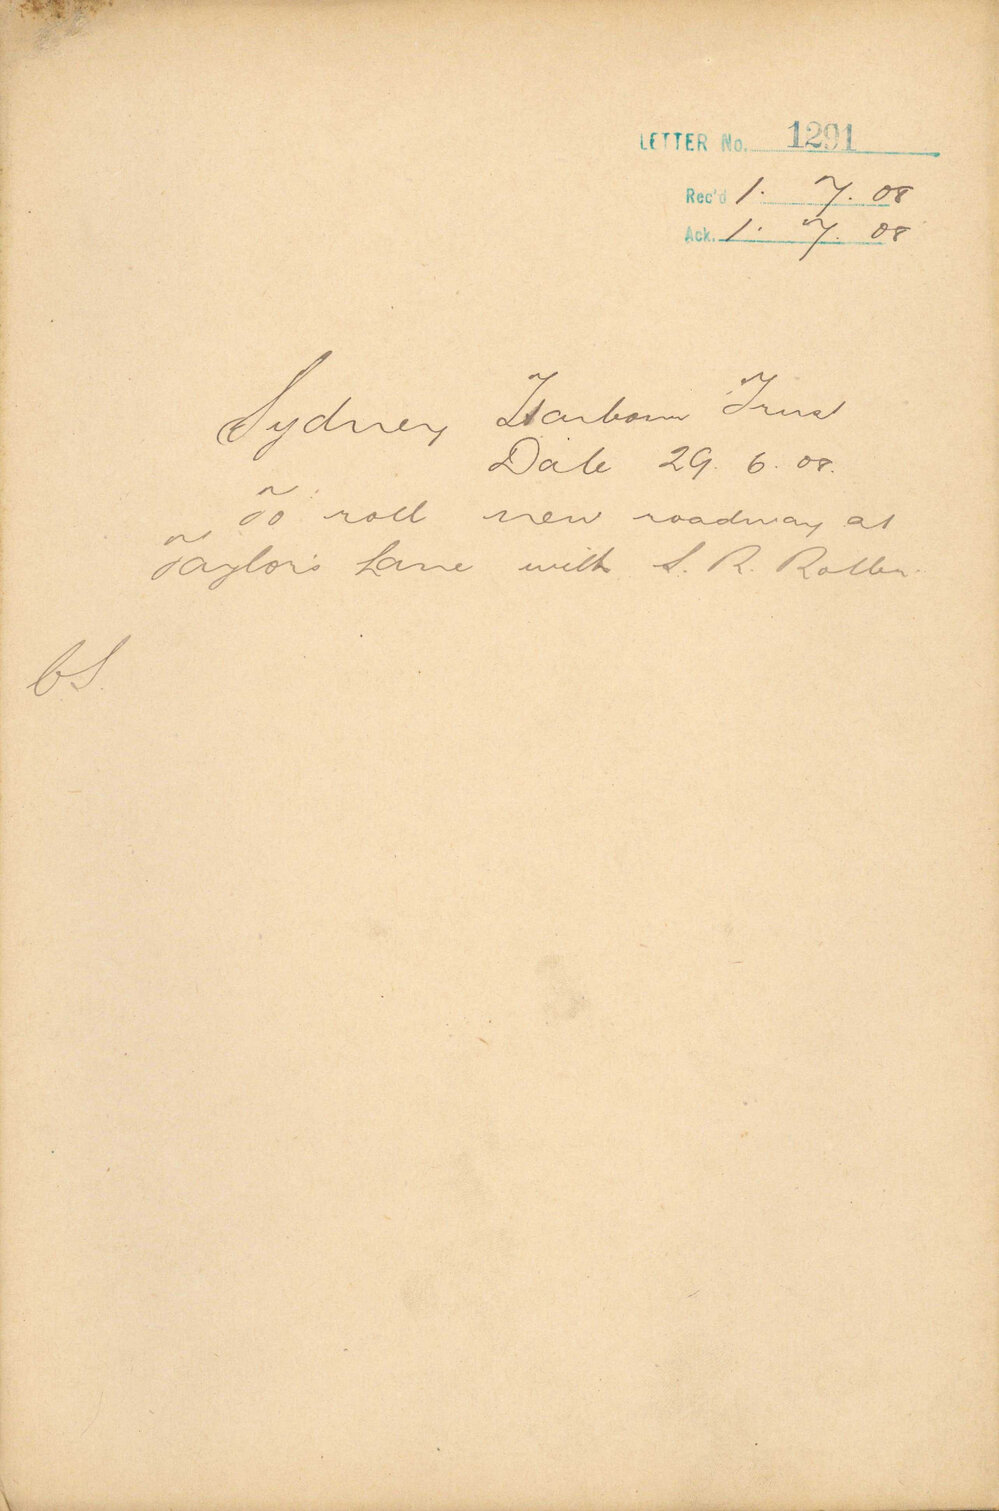 LETTER No. 1291
Rec'd 1. 7. 08
Ack. 1. 7. 08
Sydney Harbour Trust
Date 29. 6. 08.
To roll new roadway at
Taylor's Lane with S. R. Roller.
CS.